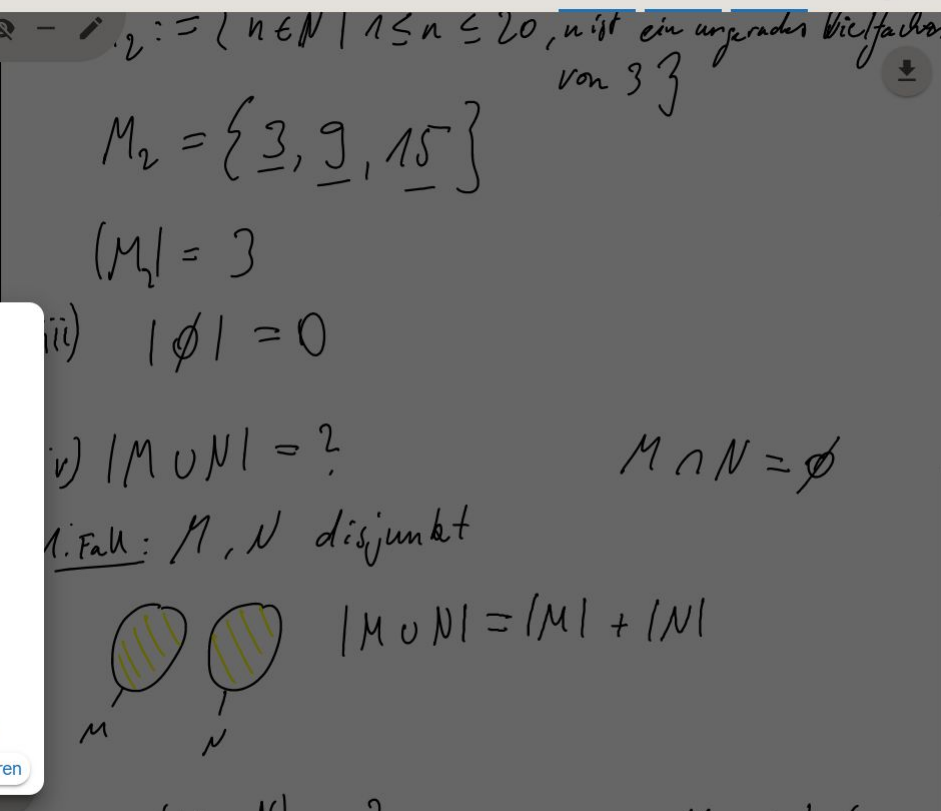 ₂ := { n ∈ N | 1 ≤ n ≤ 20, n ist ein ungerades Vielfaches
von 3 }
M₂ = { 3, 9, 15 }
|M₂| = 3
iii) |∅| = 0
iv) |M ∪ N| = ? M ∩ N = ∅
1. Fall: M, N disjunkt
|M ∪ N| = |M| + |N|
M N
ren